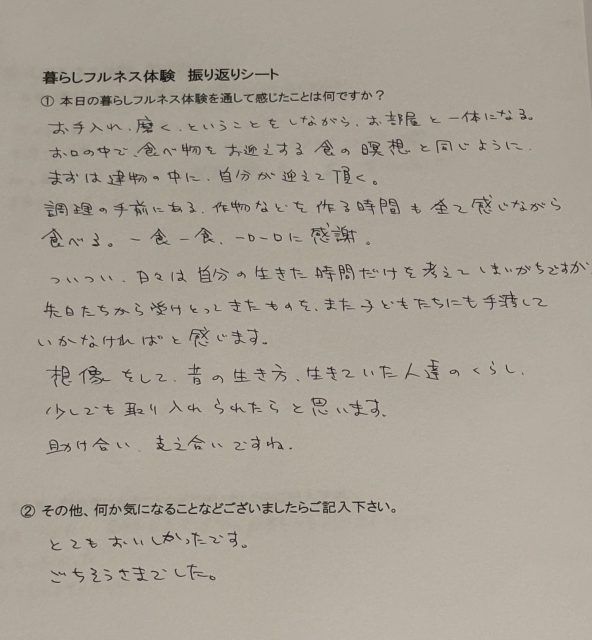 暮らしフルネス体験 振り返りシート
① 本日の暮らしフルネス体験を通して感じたことは何ですか？
お手入れ、磨く、ということをしながら、お部屋と一体になる。
お口の中で、食べ物をお迎えする食の瞑想と同じように、
まずは建物の中に、自分が迎えて頂く。
調理の手前にある、作物などを作る時間も全て感じながら
食べる。一食一食、一口一口に感謝。
ついつい、日々は自分の生きた時間だけを考えてしまいがちですが
先日たちから受けとってきたものを、また子どもたちにも手渡して
いかなければと感じます。
想像をして、昔の生き方、生きていた人達のくらし、
少しでも取り入れられたらと思います。
助け合い、支え合いですね。
② その他、何か気になることなどございましたらご記入下さい。
とてもおいしかったです。
ごちそうさまでした。